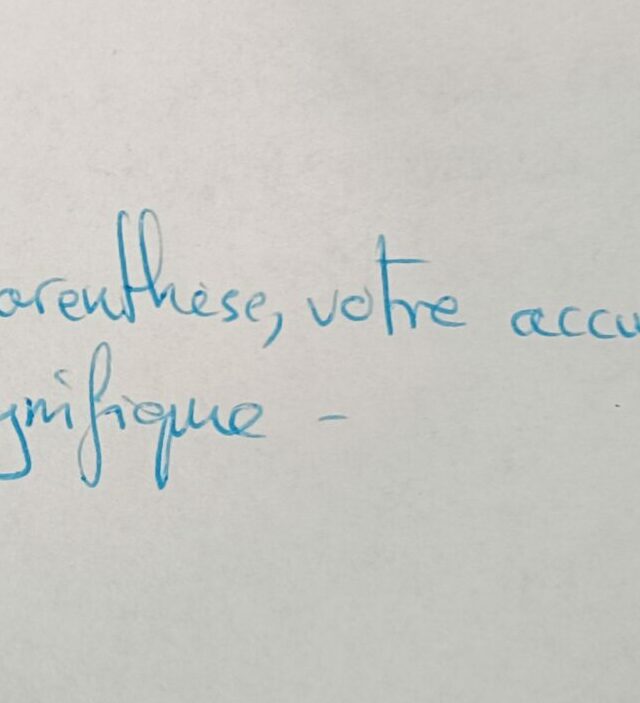 arenthèse, votre accu
gnifique -